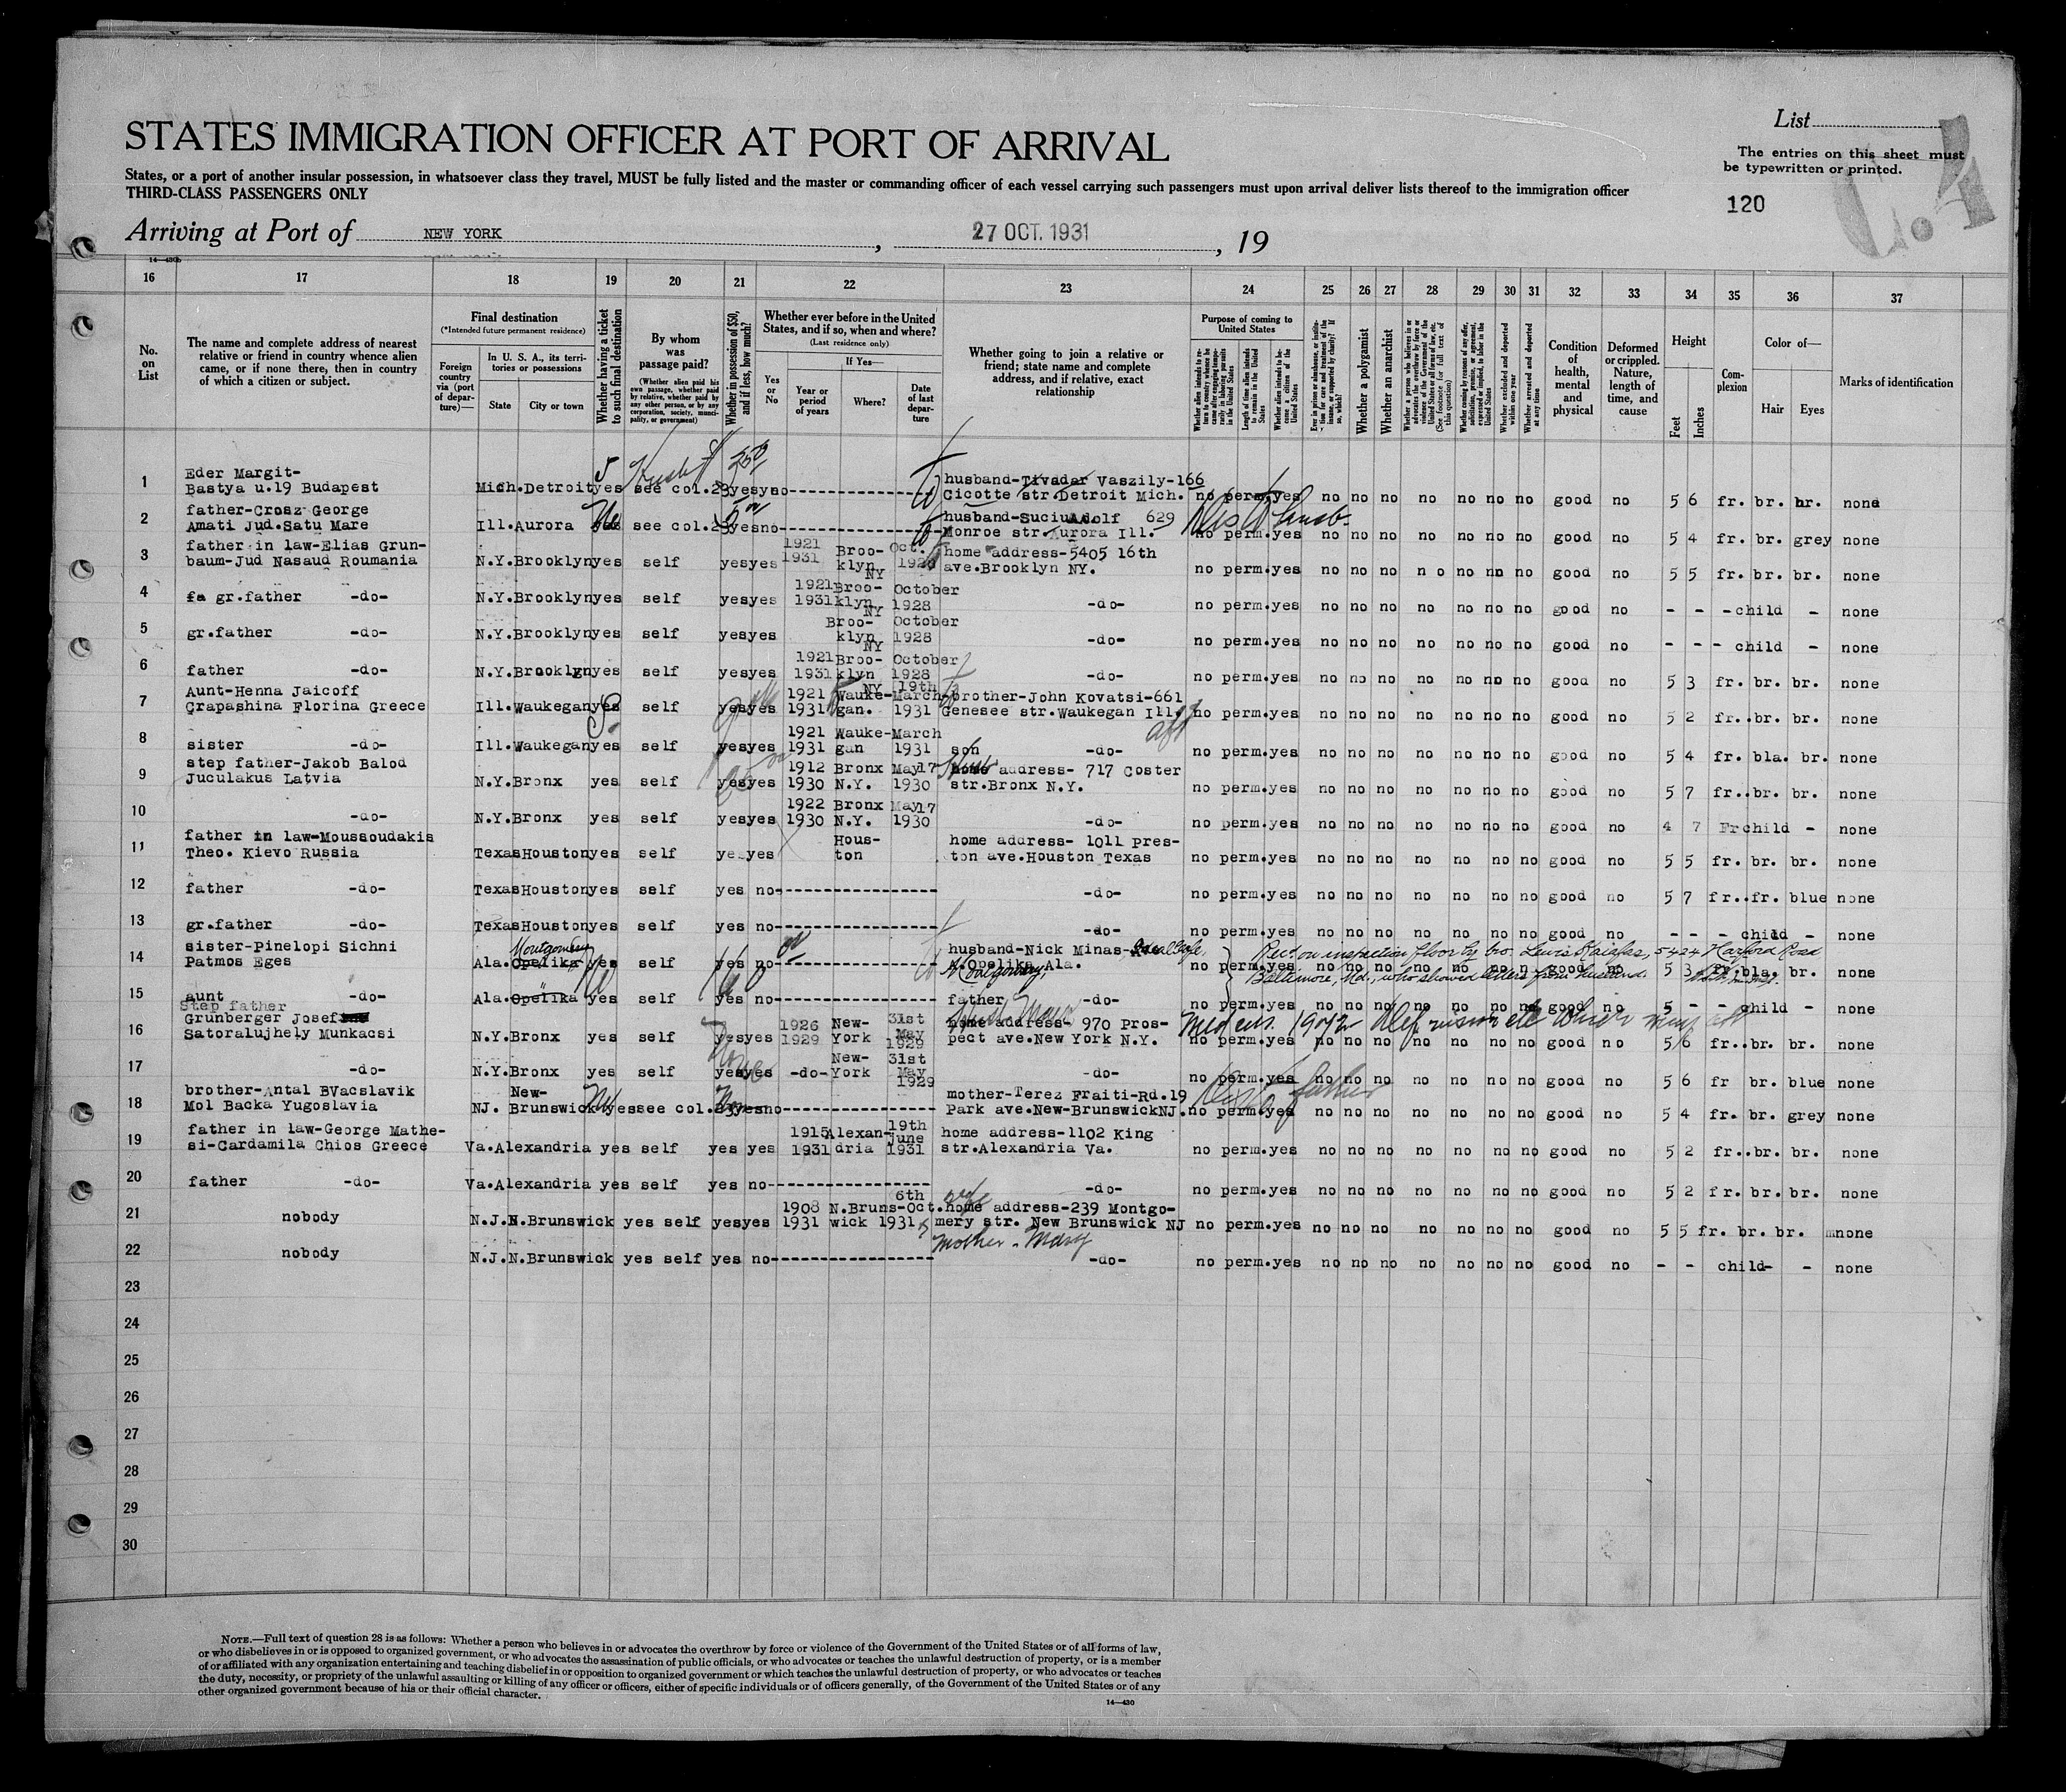 STATES IMMIGRATION OFFICER AT PORT OF ARRIVAL
List
The entries on this sheet must
be typewritten or printed.
States, or a port of another insular possession, in whatsoever class they travel, MUST be fully listed and the master or commanding officer of each vessel carrying such passengers must upon arrival deliver lists thereof to the immigration officer
THIRD-CLASS PASSENGERS ONLY
120
Arriving at Port of NEW YORK, 27 OCT. 1931, 19
16 17 18 19 20 21 22 23 24 25 26 27 28 29 30 31 32 33 34 35 36 37
No. on List
The name and complete address of nearest
relative or friend in country whence alien
came, or if none there, then in country
of which a citizen or subject.
Final destination
(*Intended future permanent residence)
Foreign country via (port of departure)—
In U. S. A., its territories or possessions
State
City or town
Whether having a ticket to such final destination
By whom was passage paid?
(Whether alien paid his own passage, whether paid by relative, whether paid by any other person, or by any corporation, society, municipality, or government)
Whether in possession of $50, and if less, how much?
Whether ever before in the United States, and if so, when and where?
(Last residence only)
Yes or No
If Yes—
Year or period of years
Where?
Date of last departure
Whether going to join a relative or
friend; state name and complete
address, and if relative, exact
relationship
Purpose of coming to United States
Whether alien intends to return to country whence he came after engaging temporarily in laboring pursuits in the United States
Length of time alien intends to remain in the United States
Whether alien intends to become a citizen of the United States
Whether a polygamist
Whether an anarchist
Whether excluded and deported within one year
Whether arrested and deported at any time
Condition of health, mental and physical
Deformed or crippled. Nature, length of time, and cause
Height
Feet
Inches
Complexion
Color of—
Hair
Eyes
Marks of identification
1 Eder Margit-
Bastya u.19 Budapest Mich. Detroit yes see col.23 yes no husband-Tivadar Vaszily-166
Cicotte str.Detroit Mich. no perm. yes no no no no no no no good no 5 6 fr. br. br. none
2 father-Crosz George
Amati Jud.Satu Mare Ill. Aurora see col.23 yes no husband-Suciu Adolf 629
Monroe str.Aurora Ill. no perm. yes no no no no no no no good no 5 4 fr. br. grey none
3 father in law-Elias Grun-
baum-Jud Nasaud Roumania N.Y. Brooklyn yes self yes yes 1921 1931 Broo-klyn NY Oct. home address-5405 16th
ave.Brooklyn NY. no perm. yes no no no no no no no good no 5 5 fr. br. br. none
4 gr.father -do- N.Y. Brooklyn yes self yes yes 1921 1931 Broo-klyn NY October 1928 -do- no perm. yes no no no no no no no good no - - - child - none
5 gr.father -do- N.Y. Brooklyn yes self yes yes Broo-klyn NY October 1928 -do- no perm. yes no no no no no no no good no - - - child - none
6 father -do- N.Y. Brooklyn yes self yes yes 1921 1931 Broo-klyn NY October 1928 -do- no perm. yes no no no no no no no good no 5 3 fr. br. br. none
7 Aunt-Henna Jaicoff
Crapashina Florina Greece Ill. Waukegan yes self yes yes 1921 1931 Wauke-gan. 19th March 1931 brother-John Kovatsi-661
Genesee str.Waukegan Ill. no perm. yes no no no no no no no good no 5 2 fr. br. br. none
8 sister -do- Ill. Waukegan yes self yes yes 1921 1931 Wauke-gan March 1931 son -do- no perm. yes no no no no no no no good no 5 4 fr. bla. br. none
9 step father-Jakob Balod
Juculakus Latvia N.Y. Bronx yes self yes yes 1912 1930 Bronx N.Y. May 17 1930 home address- 717 Coster
str.Bronx N.Y. no perm. yes no no no no no no no good no 5 7 fr. br. br. none
10 -do- N.Y. Bronx yes self yes yes 1922 1930 Bronx N.Y. May 17 1930 -do- no perm. yes no no no no no no no good no 4 7 Fr child - none
11 father in law-Moussoudakis
Theo. Kievo Russia Texas Houston yes self yes yes Hous-ton home address- 1011 Pres-
ton ave.Houston Texas no perm. yes no no no no no no no good no 5 5 fr. br. br. none
12 father -do- Texas Houston yes self yes no -do- no perm. yes no no no no no no no good no 5 7 fr. fr. blue none
13 gr.father -do- Texas Houston yes self yes no -do- no perm. yes no no no no no no no good no - - - child - none
14 sister-Pinelopi Sichni
Patmos Eges Ala. Opelika Montgomery yes self yes no husband-Nick Minas-
Opelika Ala. Montgomery, no perm. yes no no no no no no good no 5 3 fr. bla. br. none
Rec'd on inspection floor by bro. Lewis 5424 Harford Road
Baltimore, Md., who showed letters from husband.
15 aunt -do- Ala. Opelika yes self yes no father -do- no perm. yes no no no no no no no good no 5 - - child - none
16 Step father
Grunberger Josef
Satoraljhely Munkacsi N.Y. Bronx yes self yes yes 1926 1929 New-York 31st May 1929 home address- 970 Pros-
pect ave.New York N.Y. no perm. yes no no no no no no no good no 5 6 fr. br. br. none
17 -do- N.Y. Bronx yes self yes yes -do- New-York 31st May 1929 -do- no perm. yes no no no no no no no good no 5 6 fr br. blue none
18 brother-Antal BVacslavik
Mol Backa Yugoslavia NJ. New-Brunswick yes see col.23 yes no mother-Terez Fraiti-Rd.19
Park ave.New-Brunswick NJ. no perm. yes no no no no no no no good no 5 4 fr. br. grey none
19 father in law-George Mathe-
si-Cardamila Chios Greece Va. Alexandria yes self yes yes 1915 1931 Alexan-dria 19th June 1931 home address-1102 King
str.Alexandria Va. no perm. yes no no no no no no no good no 5 2 fr. br. br. none
20 father -do- Va. Alexandria yes self yes no -do- no perm. yes no no no no no no no good no 5 2 fr. br. br. none
21 nobody N.J. N.Brunswick yes self yes yes 1908 1931 N.Bruns-wick 6th Oct. 1931 home address-239 Montgo-
mery str. New Brunswick NJ no perm. yes no no no no no no no good no 5 5 fr. br. br. none
22 nobody N.J. N.Brunswick yes self yes no Mother - Mary -do- no perm. yes no no no no no no no good no - - child - - none
23
24
25
26
27
28
29
30
NOTE.—Full text of question 28 is as follows: Whether a person who believes in or advocates the overthrow by force or violence of the Government of the United States or of all forms of law,
or who disbelieves in or is opposed to organized government, or who advocates the assassination of public officials, or who advocates or teaches the unlawful destruction of property, or is a member
of or affiliated with any organization entertaining and teaching disbelief in or opposition to organized government or which teaches the unlawful destruction of property, or who advocates or teaches
the duty, necessity, or propriety of the unlawful assaulting or killing of any officer or officers, either of specific individuals or of officers generally, of the Government of the United States or of any
other organized government because of his or their official character.
14—430